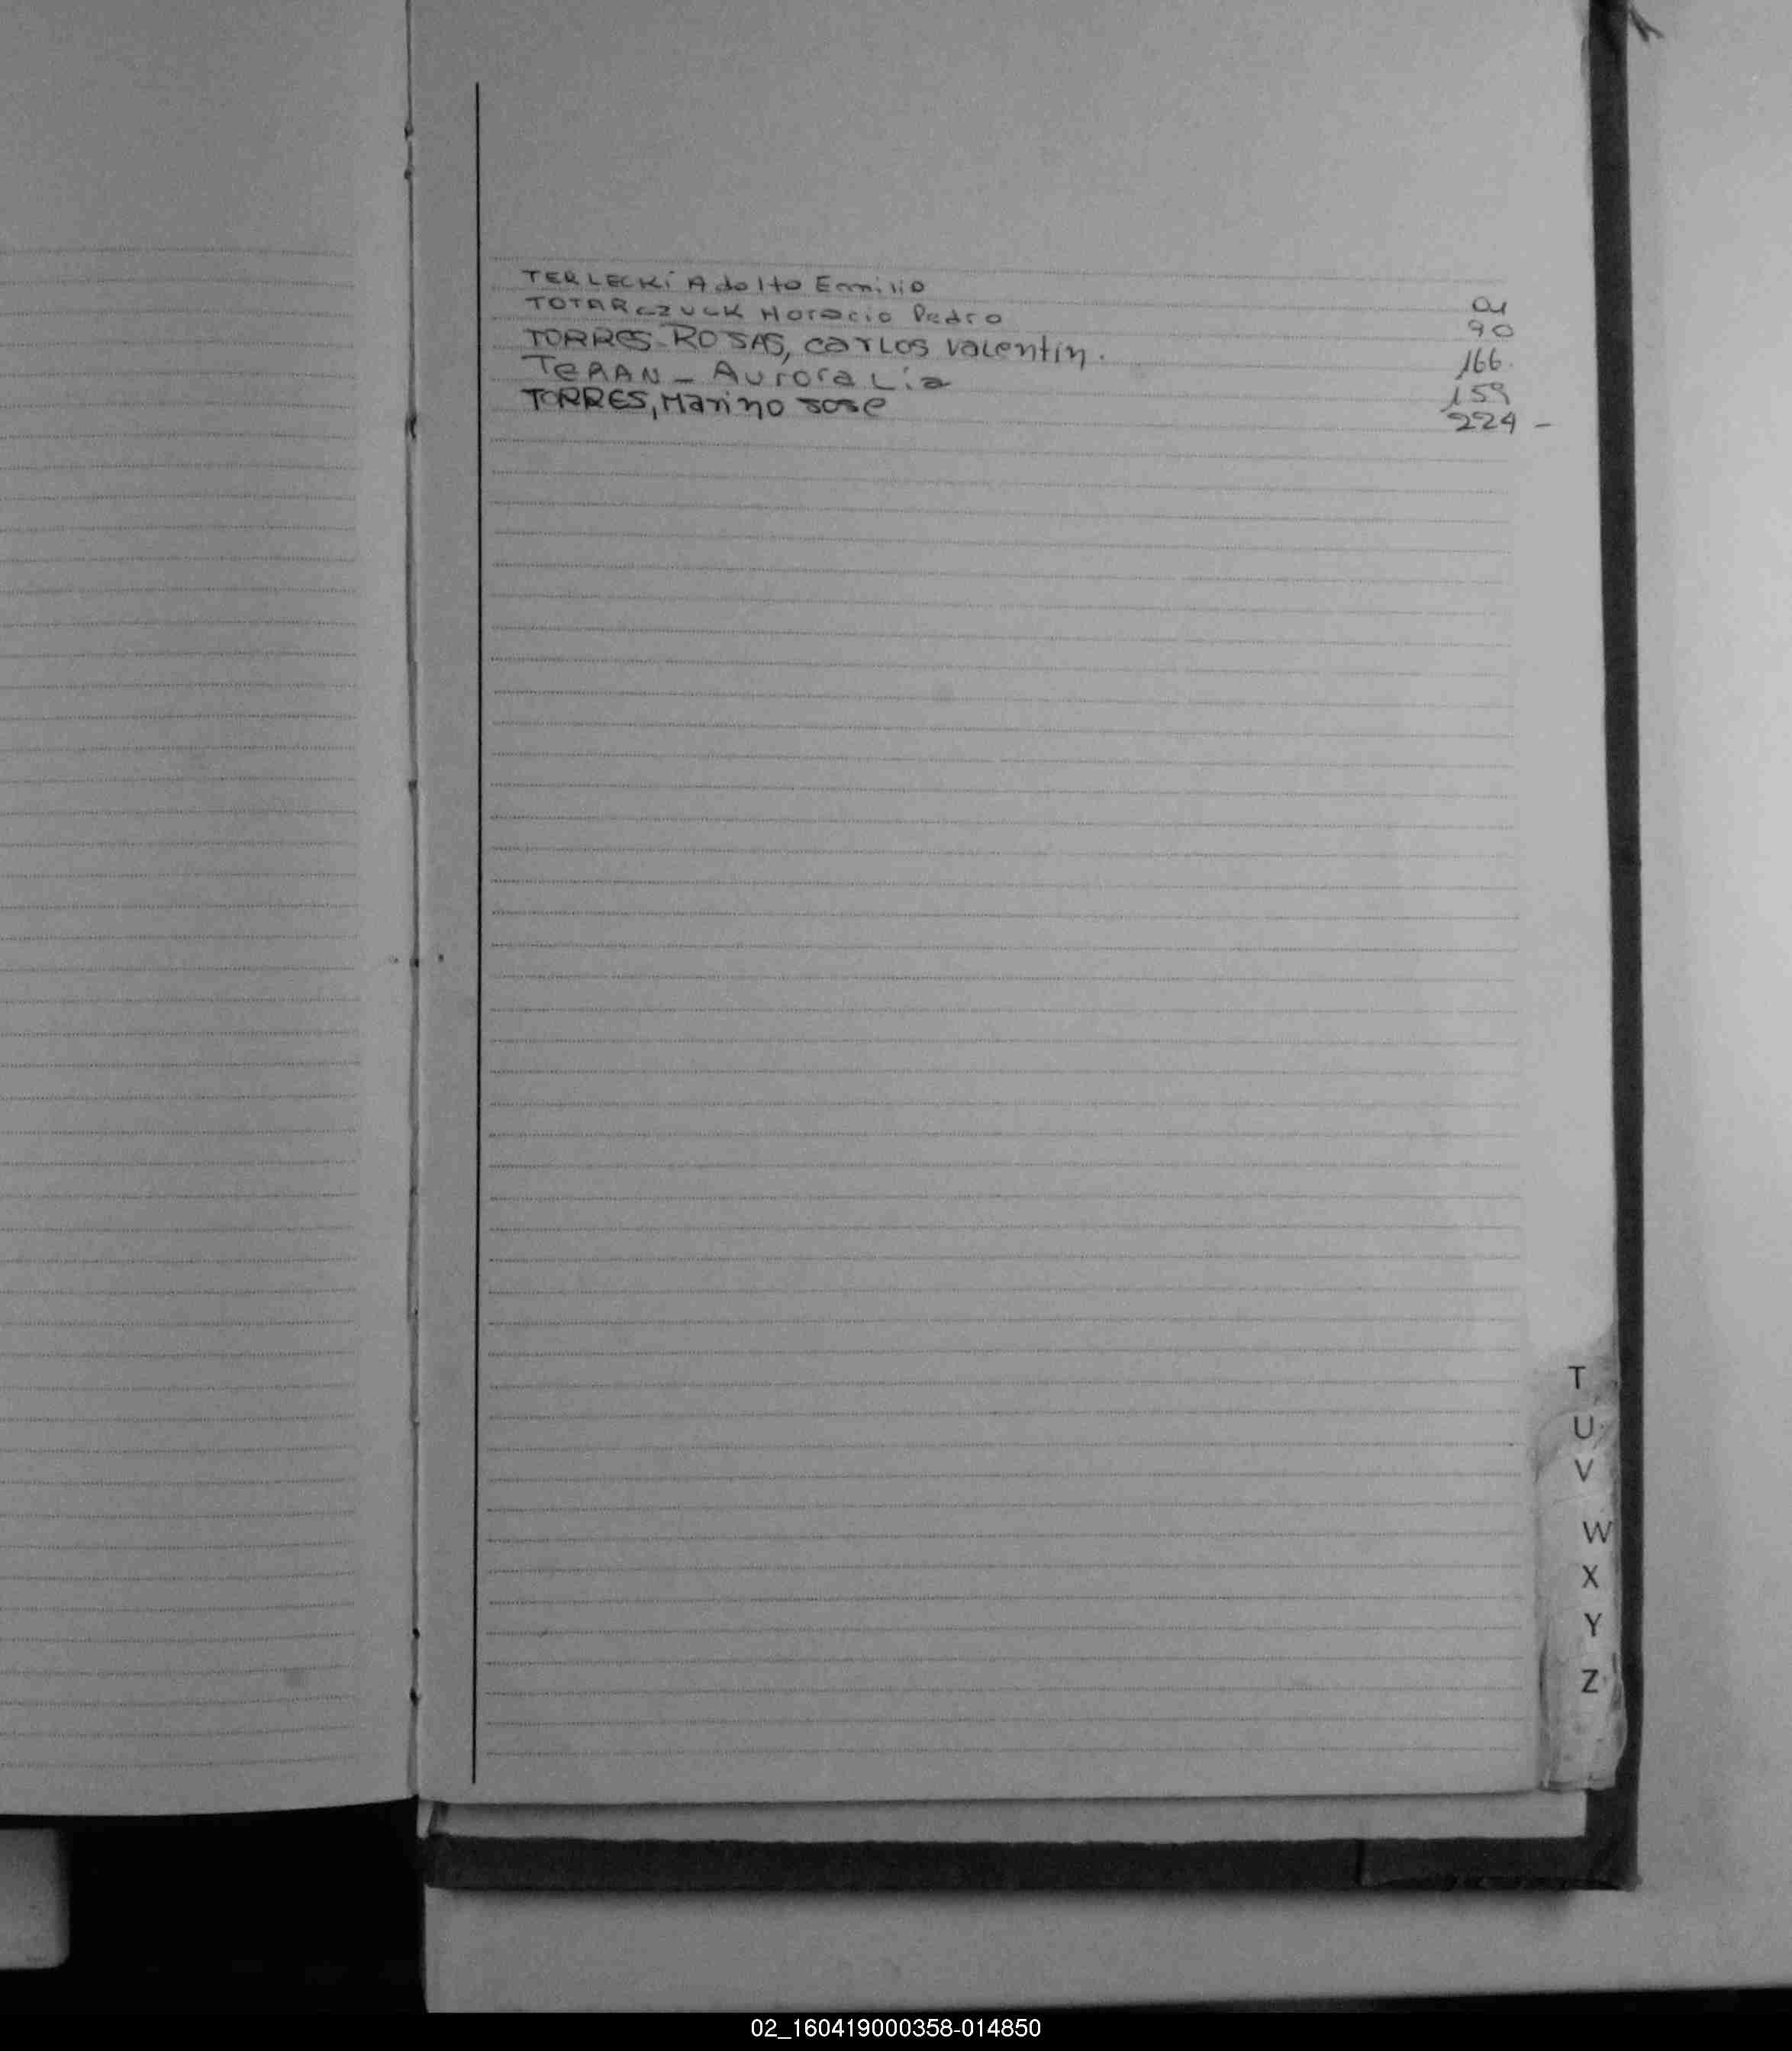 TERLECKi Adolfo Emilio 04
TOTARCZUCK Horacio Pedro 90
TORRES-ROSAS, Carlos Valentin. 166.
TeRAN - Aurora Lia 159
TORRES, Marino Jose 224 -
T
U
V
W
X
Y
Z
02_160419000358-014850